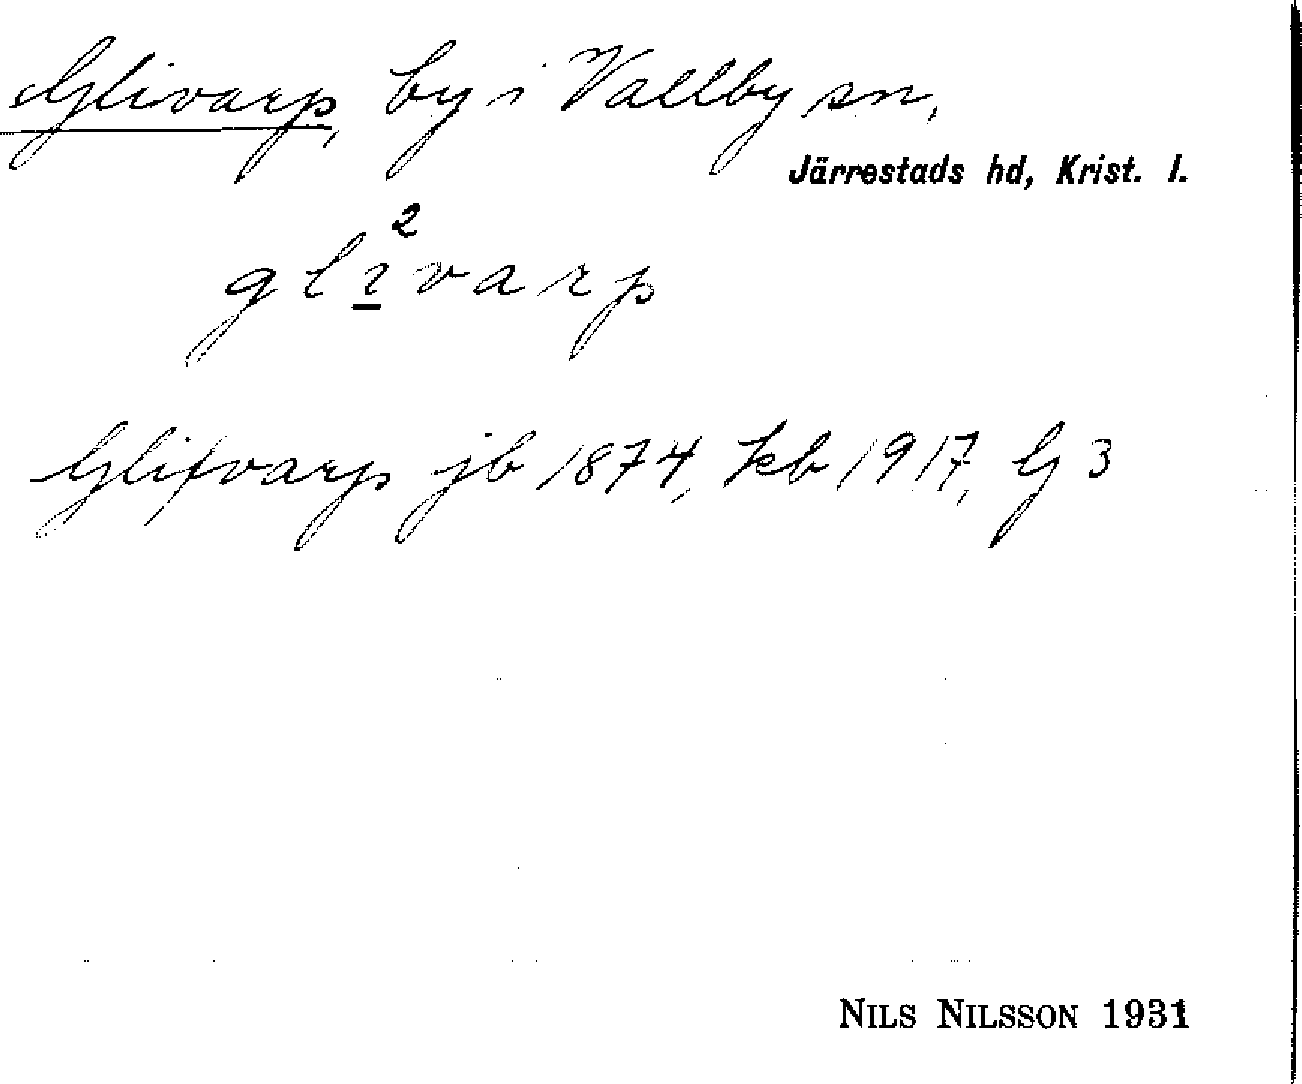 Glivarp, by i Vallby sn,
Järrestads hd, Krist. l.
gli²varp
Glifvarp jb 1874, kb 1917, G 3
NILS NILSSON 1931